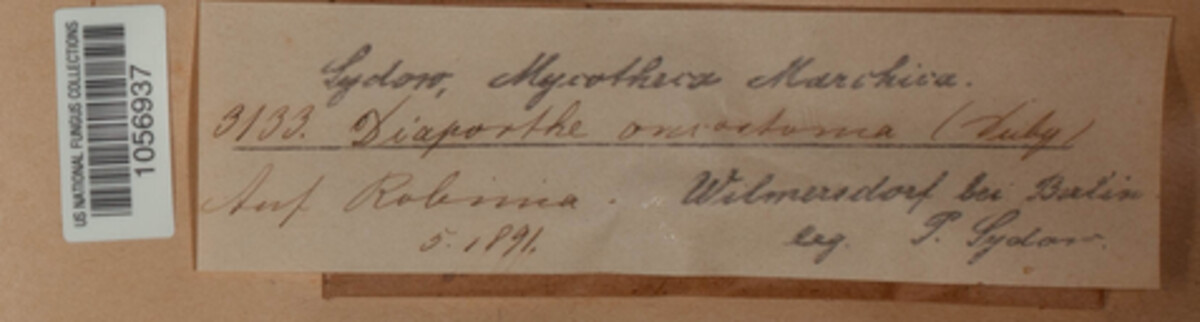 US NATIONAL FUNGUS COLLECTIONS
1056937
Sydow, Mycotheca Marchica.
3133. Diaporthe oncostoma (Duby)
Auf Robinia. Wilmersdorf bei Berlin
5. 1891. leg. P. Sydow.